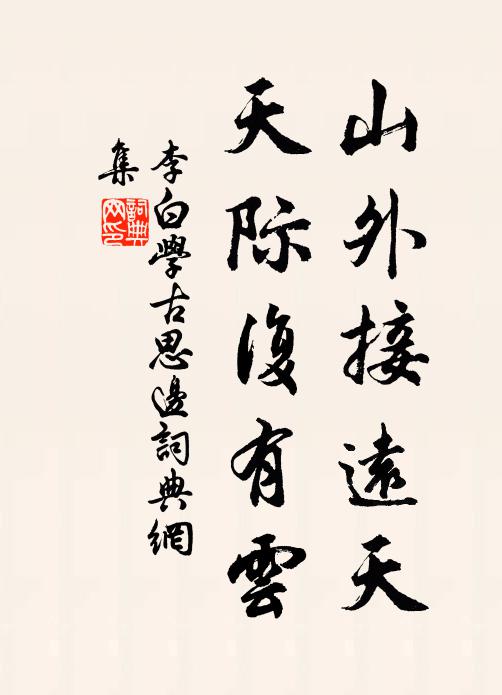 山外接遠天
天际復有雲
李白學古思邊詞典網
集
詞典
网印